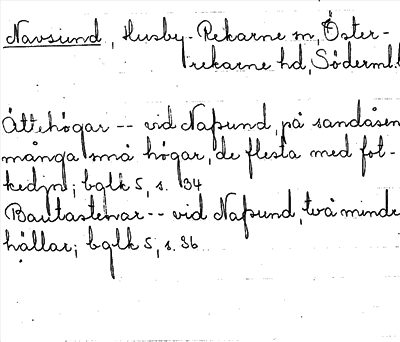 Navsund, Husby-Rekarne sn, Öster-
rekarne hd, Söderml.l
Ättehögar -- vid Naſsund, på sandåsen
många små högar, de flesta med fot-
kedjn; bglk 5, s. 34
Bautastenar -- vid Naſsund, två mindre
hällar; bglk 5, s. 36